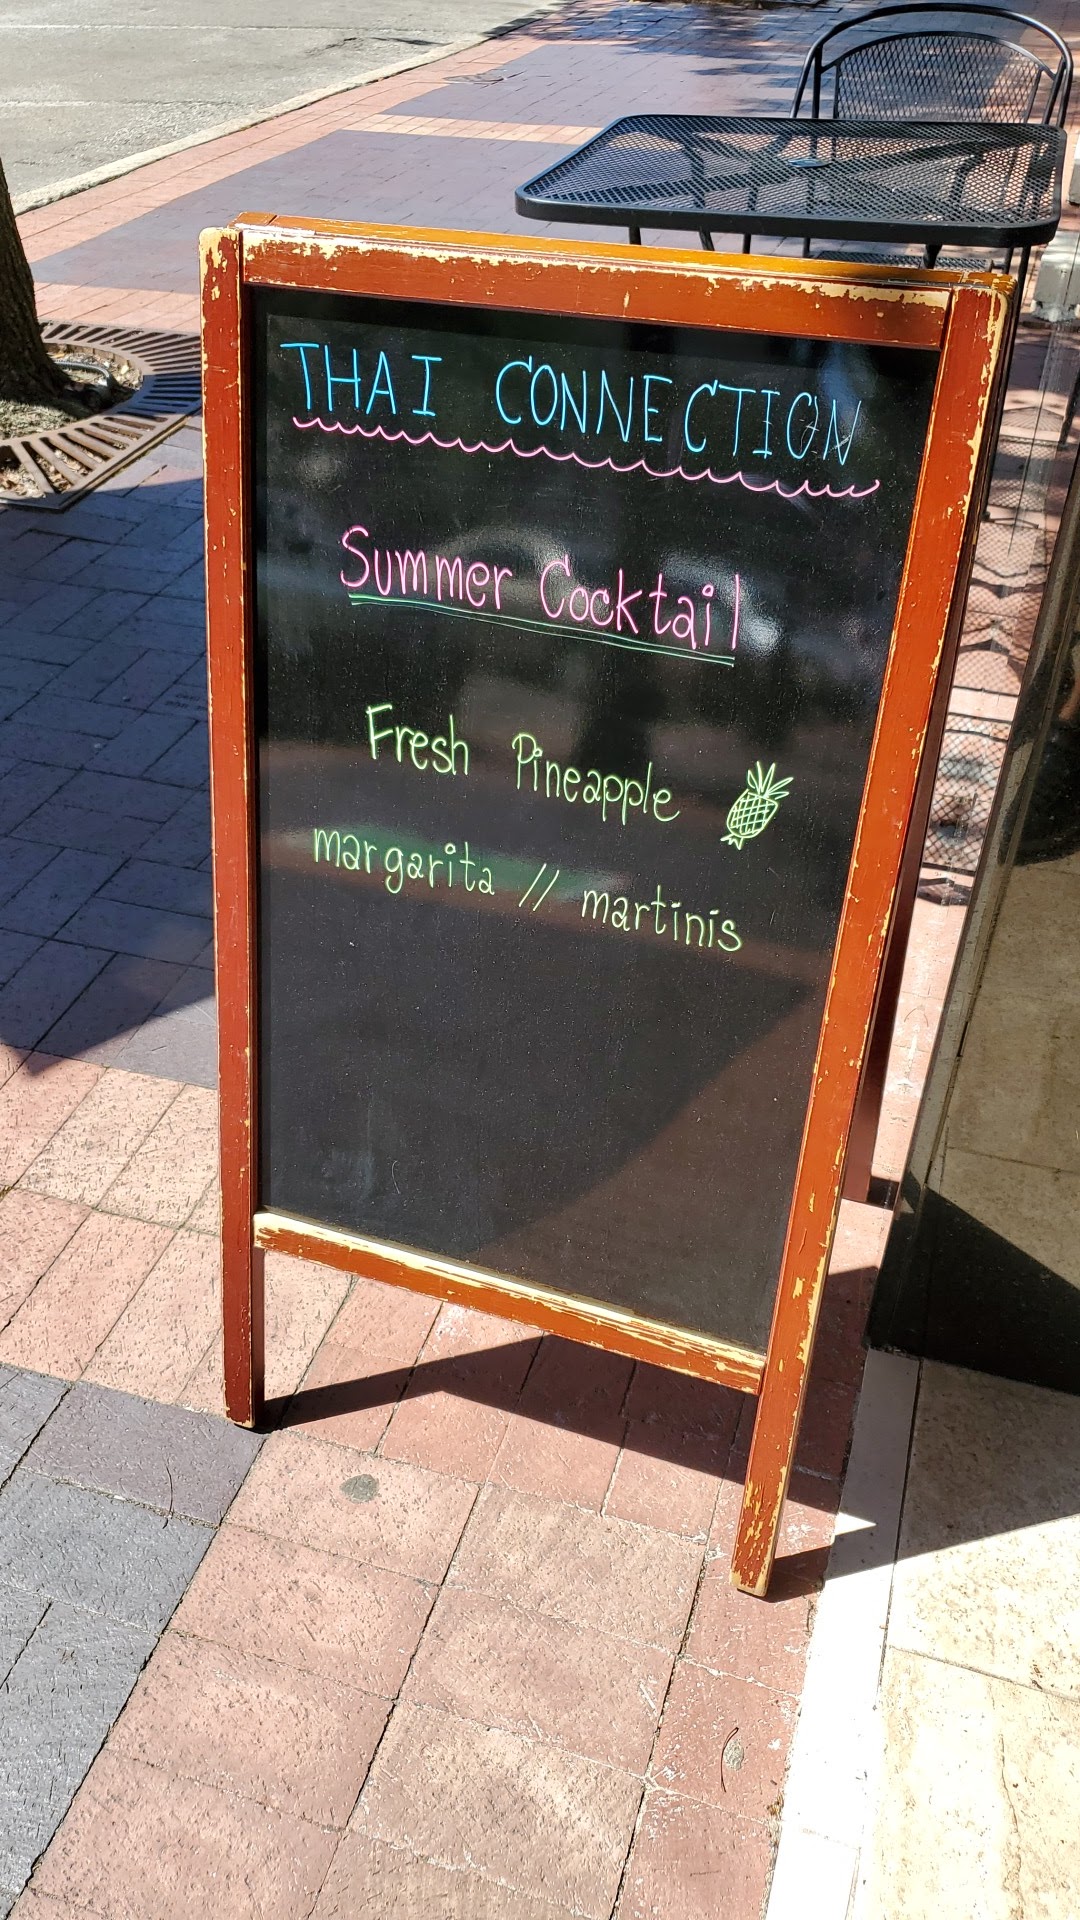 THAI CONNECTION
Summer Cocktail
Fresh Pineapple
margarita // martinis